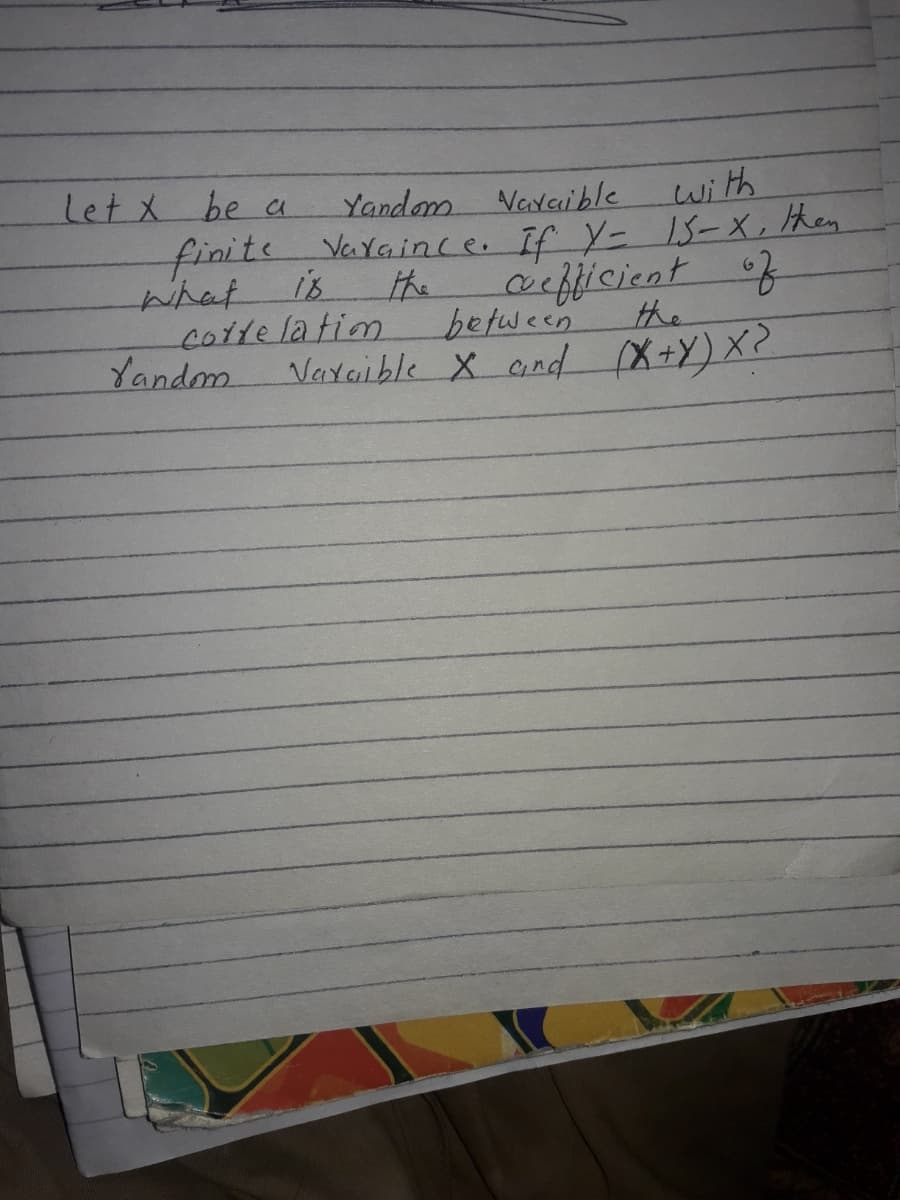 Let X be a random Varaible with
finite Varaince. If Y = 15-X, then
what is the coefficient of
correlation between the
random Varaible X and (X+Y)X?